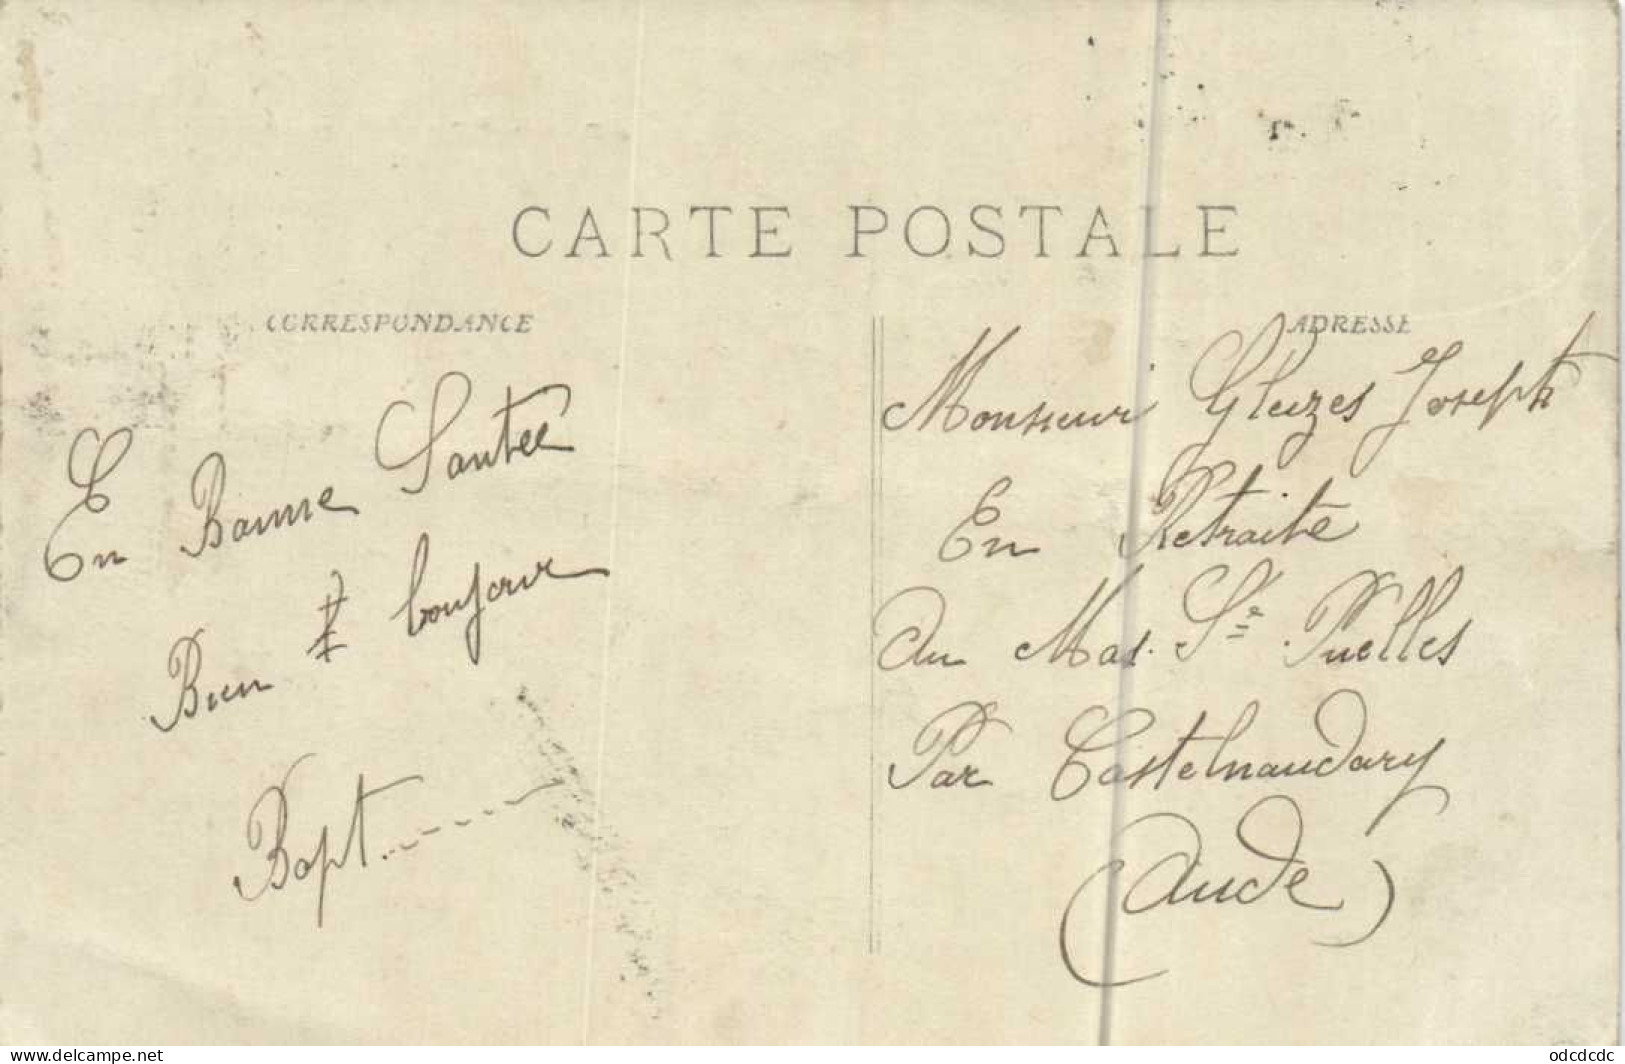 CARTE POSTALE
CORRESPONDANCE
ADRESSE
En Bonne Santée
Bien le bonjour
Bapt
Monsieur Gleizes Joseph
En Retraite
Au Mas Ste Puelles
Par Castelnaudary
(Aude)
www.delcampe.net
odcdcdc